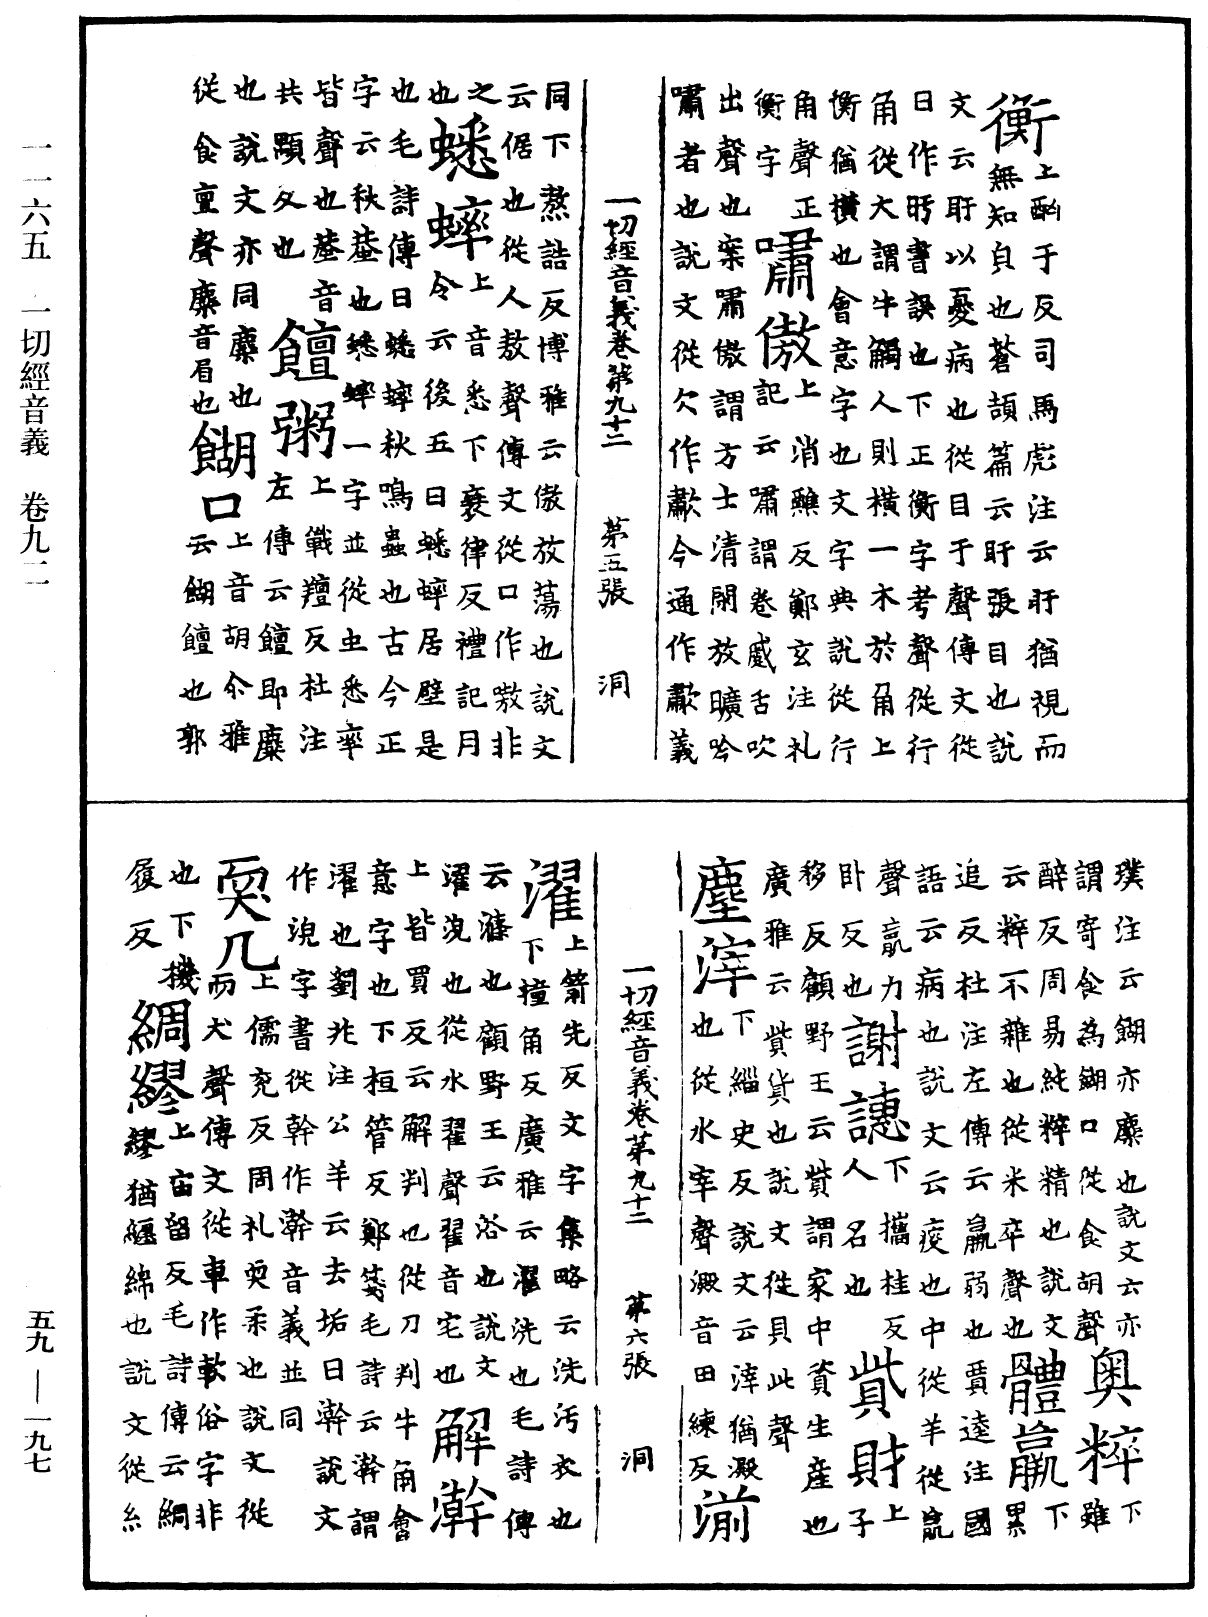 一一六五　一切經音義　卷九二
五九—一九七
衡上酌于反司馬彪注云盱猶視而
無知皃也蒼頡篇云盱張目也說
文云盱以憂病也從目于聲傳文從
日作旴書誤也下正衡字考聲從行
角從大謂牛觸人則橫一木於角上
衡猶橫也會意字也文字典說從行
角聲正
衡字嘯傲上消醮反鄭玄注礼
記云嘯謂卷蹙舌吹
出聲也案嘯傲謂方士清閑放曠吟
嘯者也說文從欠作歗今通作歗義
一切經音義卷第九十二　第五張　洞
同下熬誥反博雅云傲放蕩也說文
云倨也從人敖聲傳文從口作嗷非
之也蟋蟀上音悉下衰律反禮記月
令云後五日蟋蟀居壁是
也毛詩傳曰蟋蟀秋鳴蟲也古今正
字云秋蛬也蟋蟀一字並從虫悉率
皆聲也蛬音
共顒反也饘粥上戰羶反杜注
左傳云饘即糜
也說文亦同糜也餬口上音胡尒雅
云餬饘也郭
從食亶聲糜音眉也
璞注云餬亦糜也說文云亦
謂寄食為餬口從食胡聲奥粹下雖
醉反周易純粹精也說文
云粹不雜也從米卒聲也體羸下累
追反杜注左傳云羸弱也賈逵注國
語云病也說文云疫也中從羊從𣎆
聲𣎆力
卧反也謝譓下攜桂反
人名也貲財上子
移反顧野王云貲謂家中資生産也
廣雅云貲貨也說文從貝此聲
塵滓下緇史反說文云滓猶澱
也從水宰聲澱音田練反湔
一切經音義卷第九十二　第六張　洞
濯上箭先反文字集略云洗汚衣也
下撞角反廣雅云濯洗也毛詩傳
云滌也顧野王云浴也說文
濯浼也從水翟聲翟音宅也解澣
上皆買反云解判也從刀判牛角會
意字也下桓管反鄭箋毛詩云澣謂
濯也劉兆注公羊云去垢曰澣說文
作浼字書從幹作澣音義並同
耎几上儒兖反周礼耎柔也說文從
而犬聲傳文從車作軟俗字非
也下機
履反綢繆上宙留反毛詩傳云綢
繆猶纏綿也說文從糸